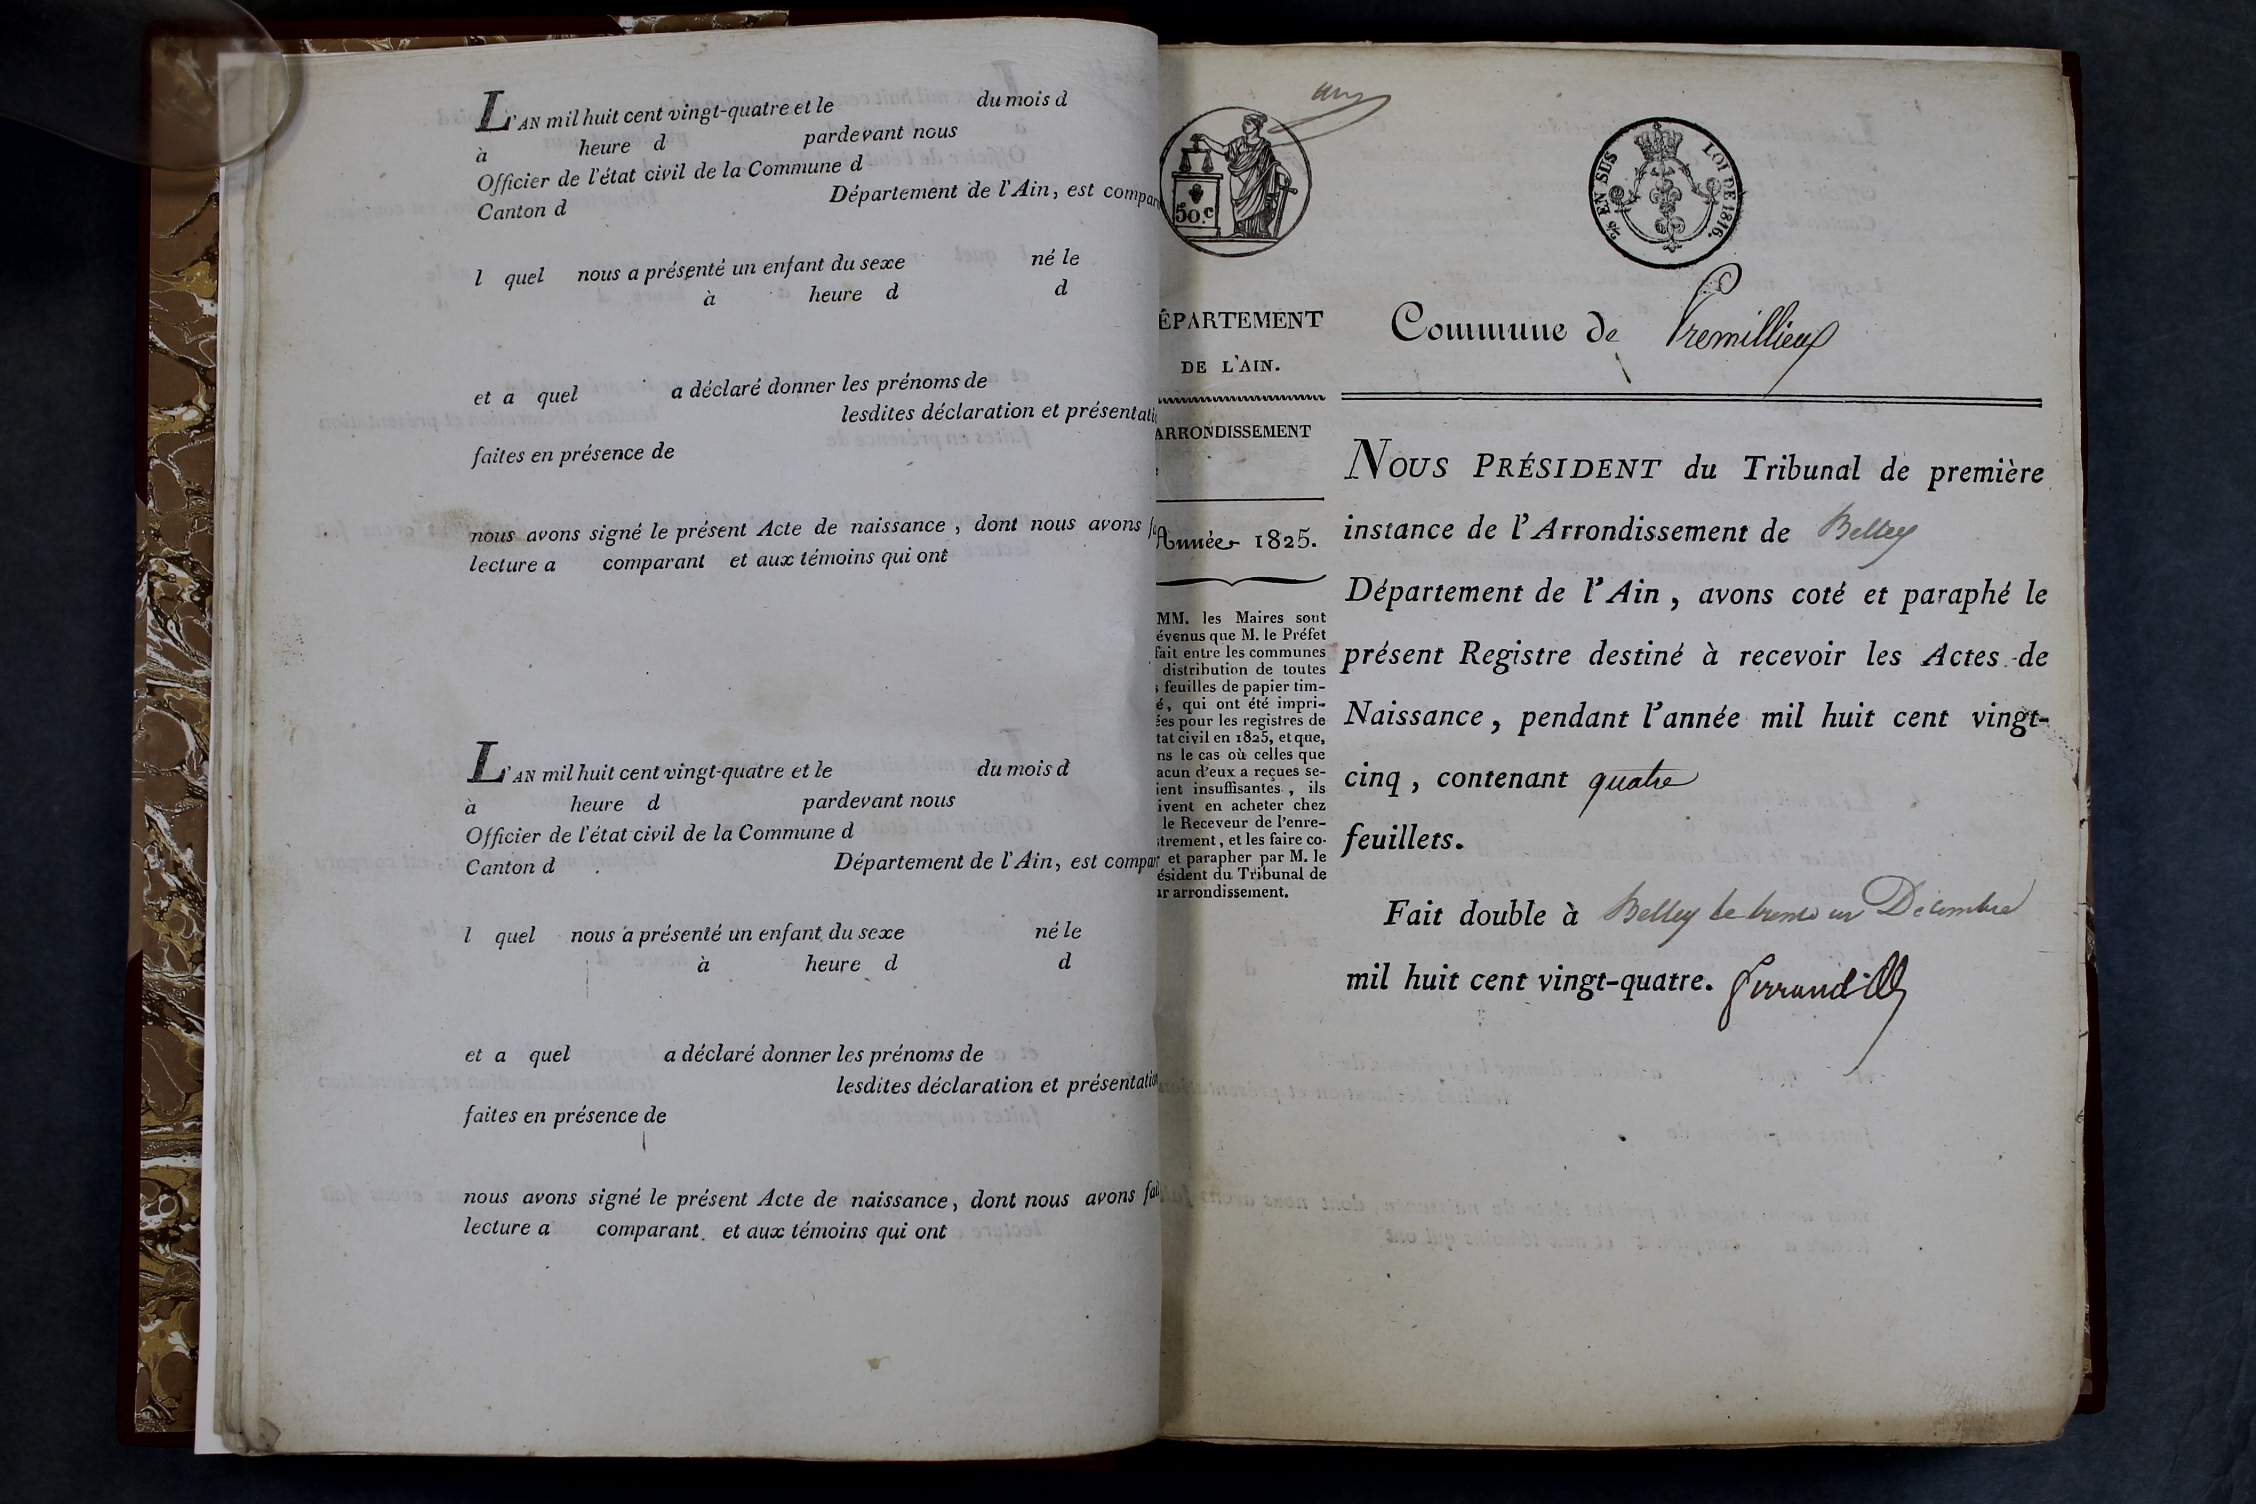 L'AN mil huit cent vingt-quatre et le du mois d
à heure d pardevant nous
Officier de l'état civil de la Commune d
Canton d Département de l'Ain, est compar
l quel nous a présenté un enfant du sexe né le
à heure d d
et a quel a déclaré donner les prénoms de
lesdites déclaration et présentati
faites en présence de
nous avons signé le présent Acte de naissance, dont nous avons
lecture a comparant et aux témoins qui ont
L'AN mil huit cent vingt-quatre et le du mois d
à heure d pardevant nous
Officier de l'état civil de la Commune d
Canton d Département de l'Ain, est compar
l quel nous a présenté un enfant du sexe né le
à heure d d
et a quel a déclaré donner les prénoms de
lesdites déclaration et présentation
faites en présence de
nous avons signé le présent Acte de naissance, dont nous avons fai
lecture a comparant et aux témoins qui ont
50.c
EN SUS LOI DE 1816.
ÉPARTEMENT
DE L'AIN.
ARRONDISSEMENT
Année 1825.
MM. les Maires sont
évenus que M. le Préfet
fait entre les communes
distribution de toutes
s feuilles de papier tim-
é, qui ont été impri-
ées pour les registres de
tat civil en 1825, et que,
ns le cas où celles que
acun d'eux a reçues se-
ient insuffisantes, ils
ivent en acheter chez
le Receveur de l'enre-
trement, et les faire co-
et parapher par M. le
ésident du Tribunal de
ur arrondissement.
Commune de Premillieu
NOUS PRÉSIDENT du Tribunal de première
instance de l'Arrondissement de Belley
Département de l'Ain, avons coté et paraphé le
présent Registre destiné à recevoir les Actes de
Naissance, pendant l'année mil huit cent vingt-
cinq, contenant quatre
feuillets.
Fait double à Belley le trente un Décembre
mil huit cent vingt-quatre.